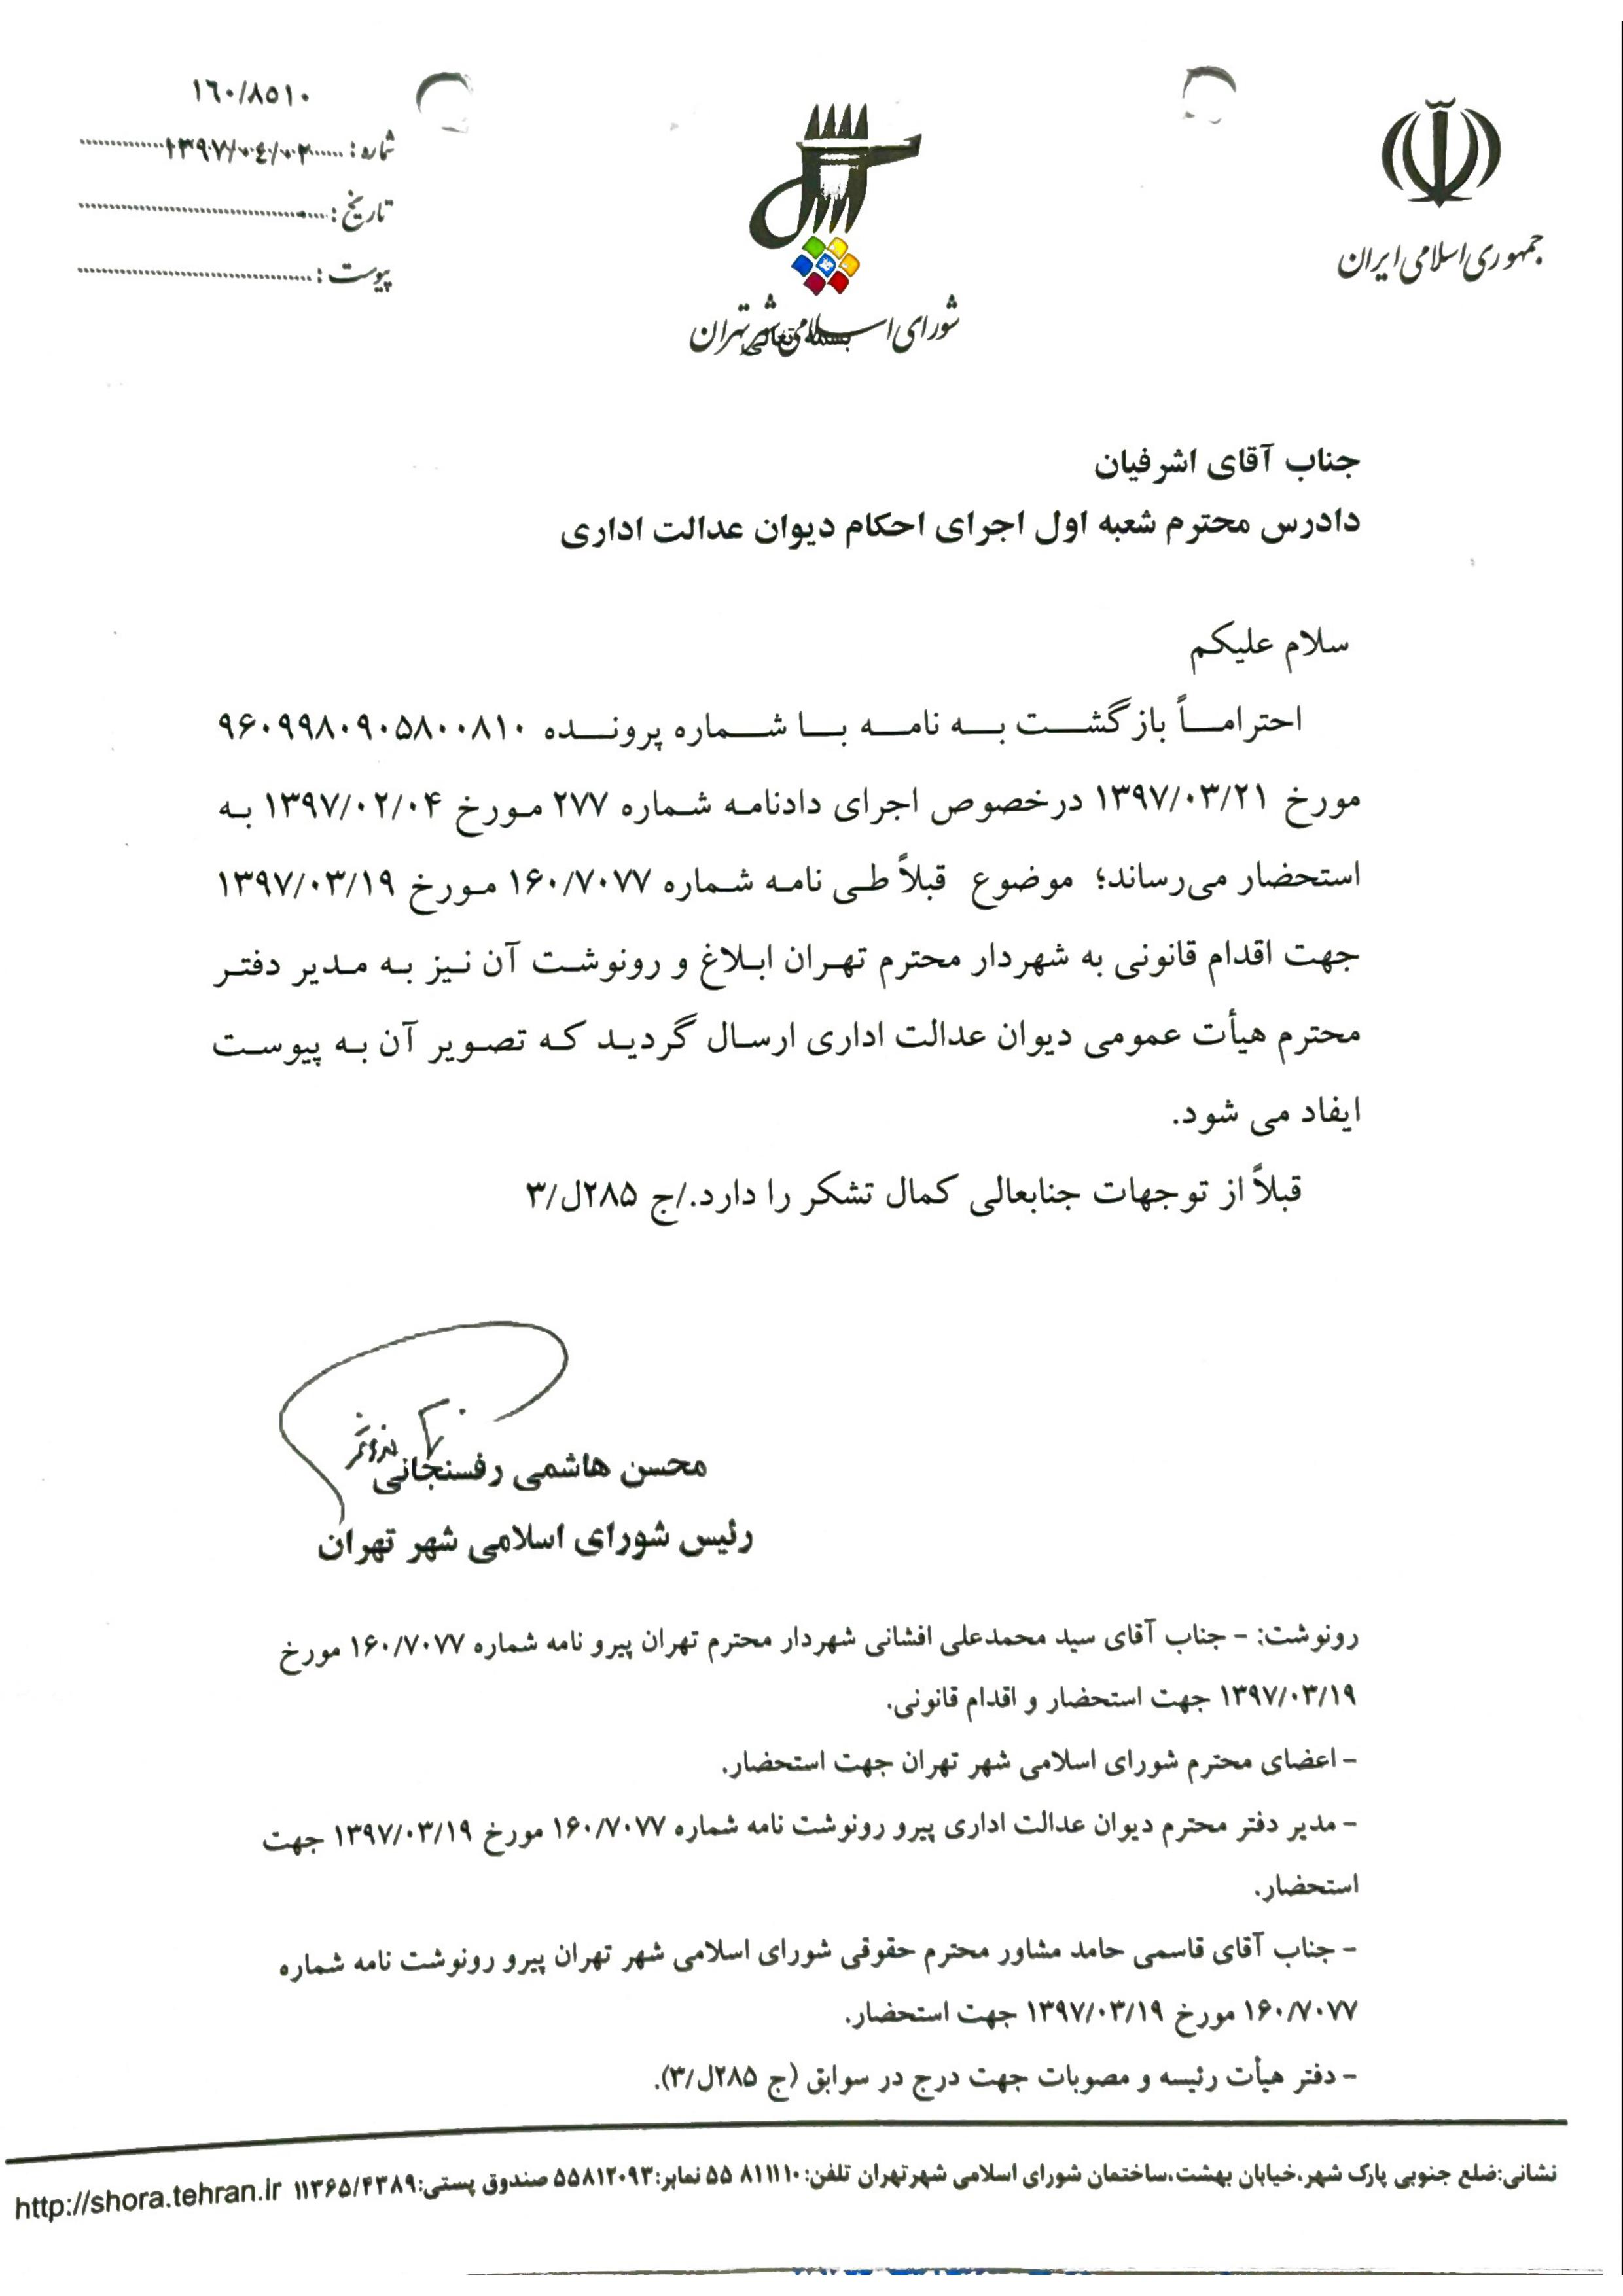 ۱۶۰/۸۵۱۰
شماره: ۱۳۹۷/۰۴/۰۲
تاریخ:
پیوست:
جمهوری اسلامی ایران
شورای اسلامی شهر تهران
بسمه تعالی
جناب آقای اشرفیان
دادرس محترم شعبه اول اجرای احکام دیوان عدالت اداری
سلام علیکم
احتراماً بازگشت به نامه با شماره پرونده ۹۶۰۹۹۸۰۹۰۵۸۰۰۸۱۰
مورخ ۱۳۹۷/۰۳/۲۱ درخصوص اجرای دادنامه شماره ۲۷۷ مورخ ۱۳۹۷/۰۲/۰۴ به
استحضار می‌رساند؛ موضوع قبلاً طی نامه شماره ۱۶۰/۷۰۷۷ مورخ ۱۳۹۷/۰۳/۱۹
جهت اقدام قانونی به شهردار محترم تهران ابلاغ و رونوشت آن نیز به مدیر دفتر
محترم هیأت عمومی دیوان عدالت اداری ارسال گردید که تصویر آن به پیوست
ایفاد می شود.
قبلاً از توجهات جنابعالی کمال تشکر را دارد./ج ۲۸۵ل/۳
محسن هاشمی رفسنجانی
رئیس شورای اسلامی شهر تهران
رونوشت: - جناب آقای سید محمدعلی افشانی شهردار محترم تهران پیرو نامه شماره ۱۶۰/۷۰۷۷ مورخ
۱۳۹۷/۰۳/۱۹ جهت استحضار و اقدام قانونی.
- اعضای محترم شورای اسلامی شهر تهران جهت استحضار.
- مدیر دفتر محترم دیوان عدالت اداری پیرو رونوشت نامه شماره ۱۶۰/۷۰۷۷ مورخ ۱۳۹۷/۰۳/۱۹ جهت
استحضار.
- جناب آقای قاسمی حامد مشاور محترم حقوقی شورای اسلامی شهر تهران پیرو رونوشت نامه شماره
۱۶۰/۷۰۷۷ مورخ ۱۳۹۷/۰۳/۱۹ جهت استحضار.
- دفتر هیأت رئیسه و مصوبات جهت درج در سوابق (ج ۲۸۵ل/۳).
نشانی:ضلع جنوبی پارک شهر،خیابان بهشت،ساختمان شورای اسلامی شهرتهران تلفن: ۸۱۱۱۱۰ ۵۵ نمابر:۵۵۸۱۲۰۹۳ صندوق پستی:۱۱۳۶۵/۴۳۸۹ http://shora.tehran.ir